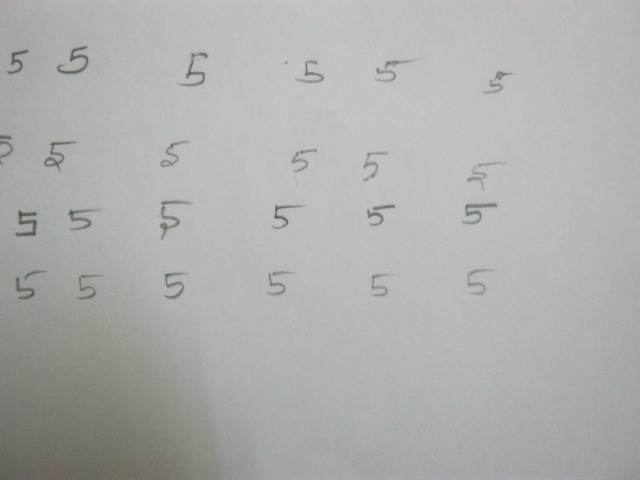 5 5 5 5 5 5
5 5 5 5 5 5
5 5 5 5 5 5
5 5 5 5 5 5